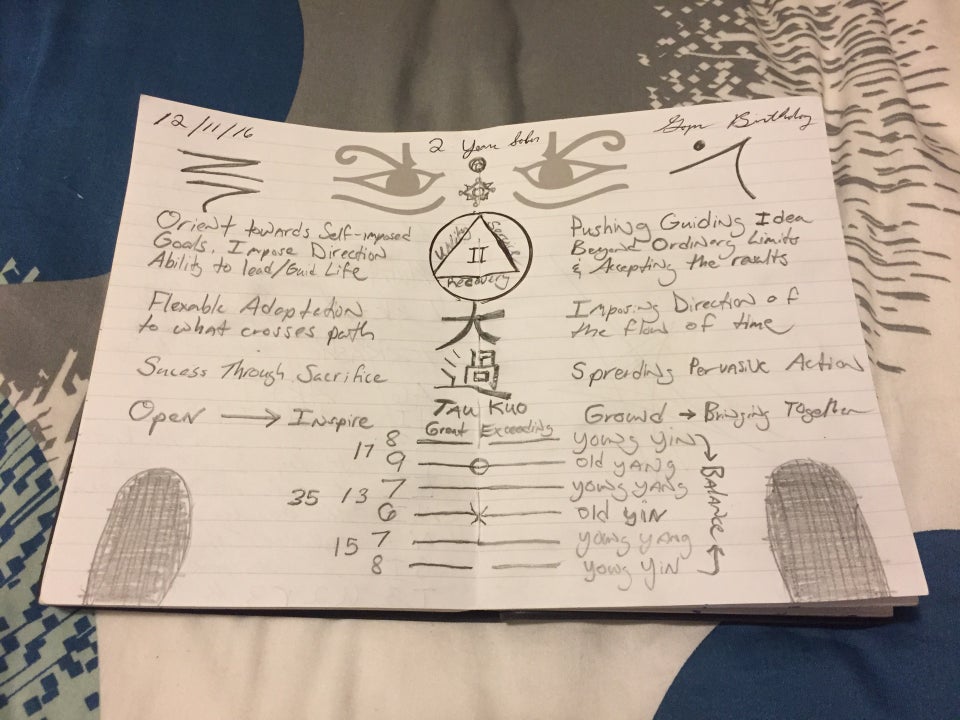 12/11/16
2 Years Sober
Birthday
Orient towards Self-imposed
Goals. Impose Direction
Ability to lead/Guid Life
Flexable Adaptation
to what crosses path
Sucess Through Sacrifice
Open → Inspire
Unity
Service
II
Recovery
大
過
TAU KUO
Great Exceeding
Pushing Guiding Idea
Beyond Ordinary Limits
& Accepting the results
Imposing Direction of
the flow of time
Spreading Pervasive Action
Ground → Bringing Together
17 8 young Yin
9 old YANG
35 13 7 young YANG
6 old YIN
15 7 young YANG
8 young YIN
BALANCE